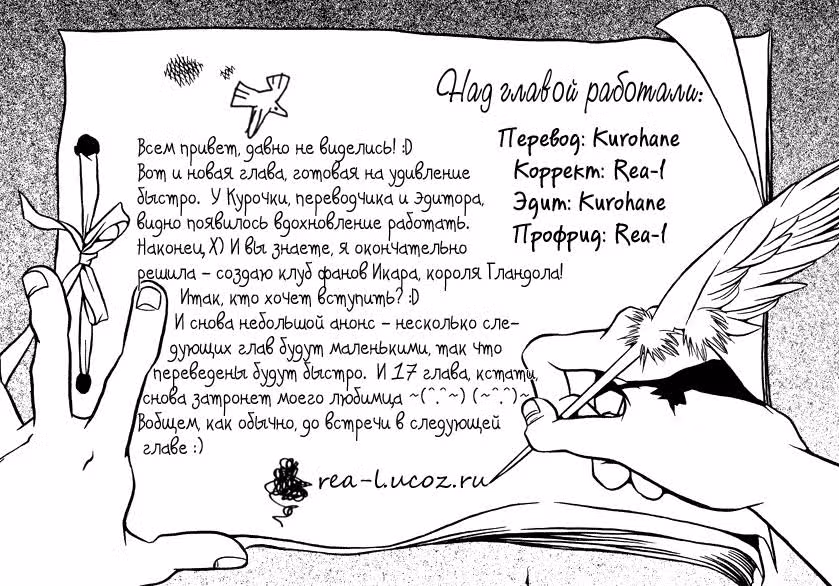 Над главой работали:
Перевод: Kurohane
Коррект: Rea-l
Эдит: Kurohane
Профрид: Rea-l
Всем привет, давно не виделись! :D
Вот и новая глава, готовая на удивление
быстро. У Курочки, переводчика и эдитора,
видно появилось вдохновление работать.
Наконец X) И вы знаете, я окончательно
решила – создаю клуб фанов Икара, короля Гландола!
Итак, кто хочет вступить? :D
И снова небольшой анонс – несколько сле-
дующих глав будут маленькими, так что
переведены будут быстро. И 17 глава, кстати,
снова затронет моего любимца ~(^.^~) (~^.^)~
Вобщем, как обычно, до встречи в следующей
главе :)
rea-l.ucoz.ru